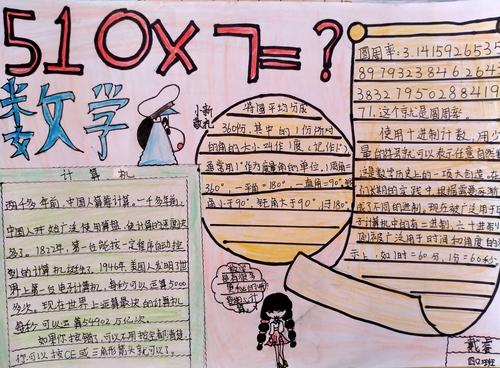 510×7=?
数学
小新敬礼
计算机
四千多年前,中国人算筹计算。一千多年前,
中国人开始广泛使用算盘,使计算的速度快
多了。1822年,第一台能按一定程序自动控
制的计算机诞生了。1946年美国人发明了世
界上第一台电子计算机,每秒可以运算5000
多次。现在世界上运算最快的计算机
每秒可以运算54902万亿次。
如果你按错了,可以不用按全部清楚,
你可以按CE或三角形箭头就可以了。
将圆平均分成
360份,其中的1份所对
的角的大小叫作1度(记作1°)
通常用1°作为度量角的单位,1周角=
360°,一平角=180°,一直角=90°,锐
角小于90°,钝角大于90°,小于180°
圆周率:3.1415926535
8979323846264
3832795028841
71.这个就是圆周率
使用十进制计数,用
量的符号就可以表示任意自然
这是数学历史上的一项大创造。在
们长期的实践中,根据需要还
了不同的进制。现在被广泛用
于计算机中的有二进制,六十进制
则被广泛用于时间和角度的
示上,如1时=60分,1分=60秒
数学
戴蓉
四(2)班